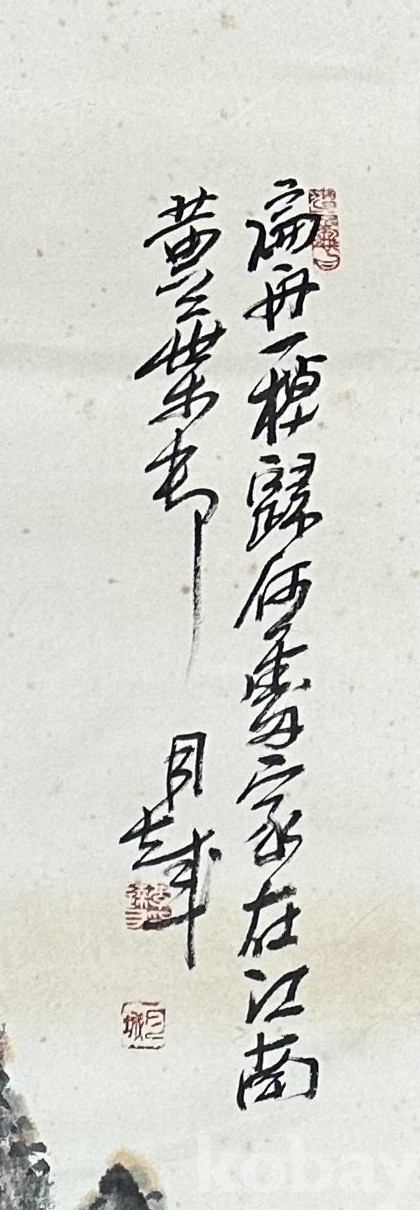 扁舟一棹歸何處家在江南
黄葉邨
月城
kobay